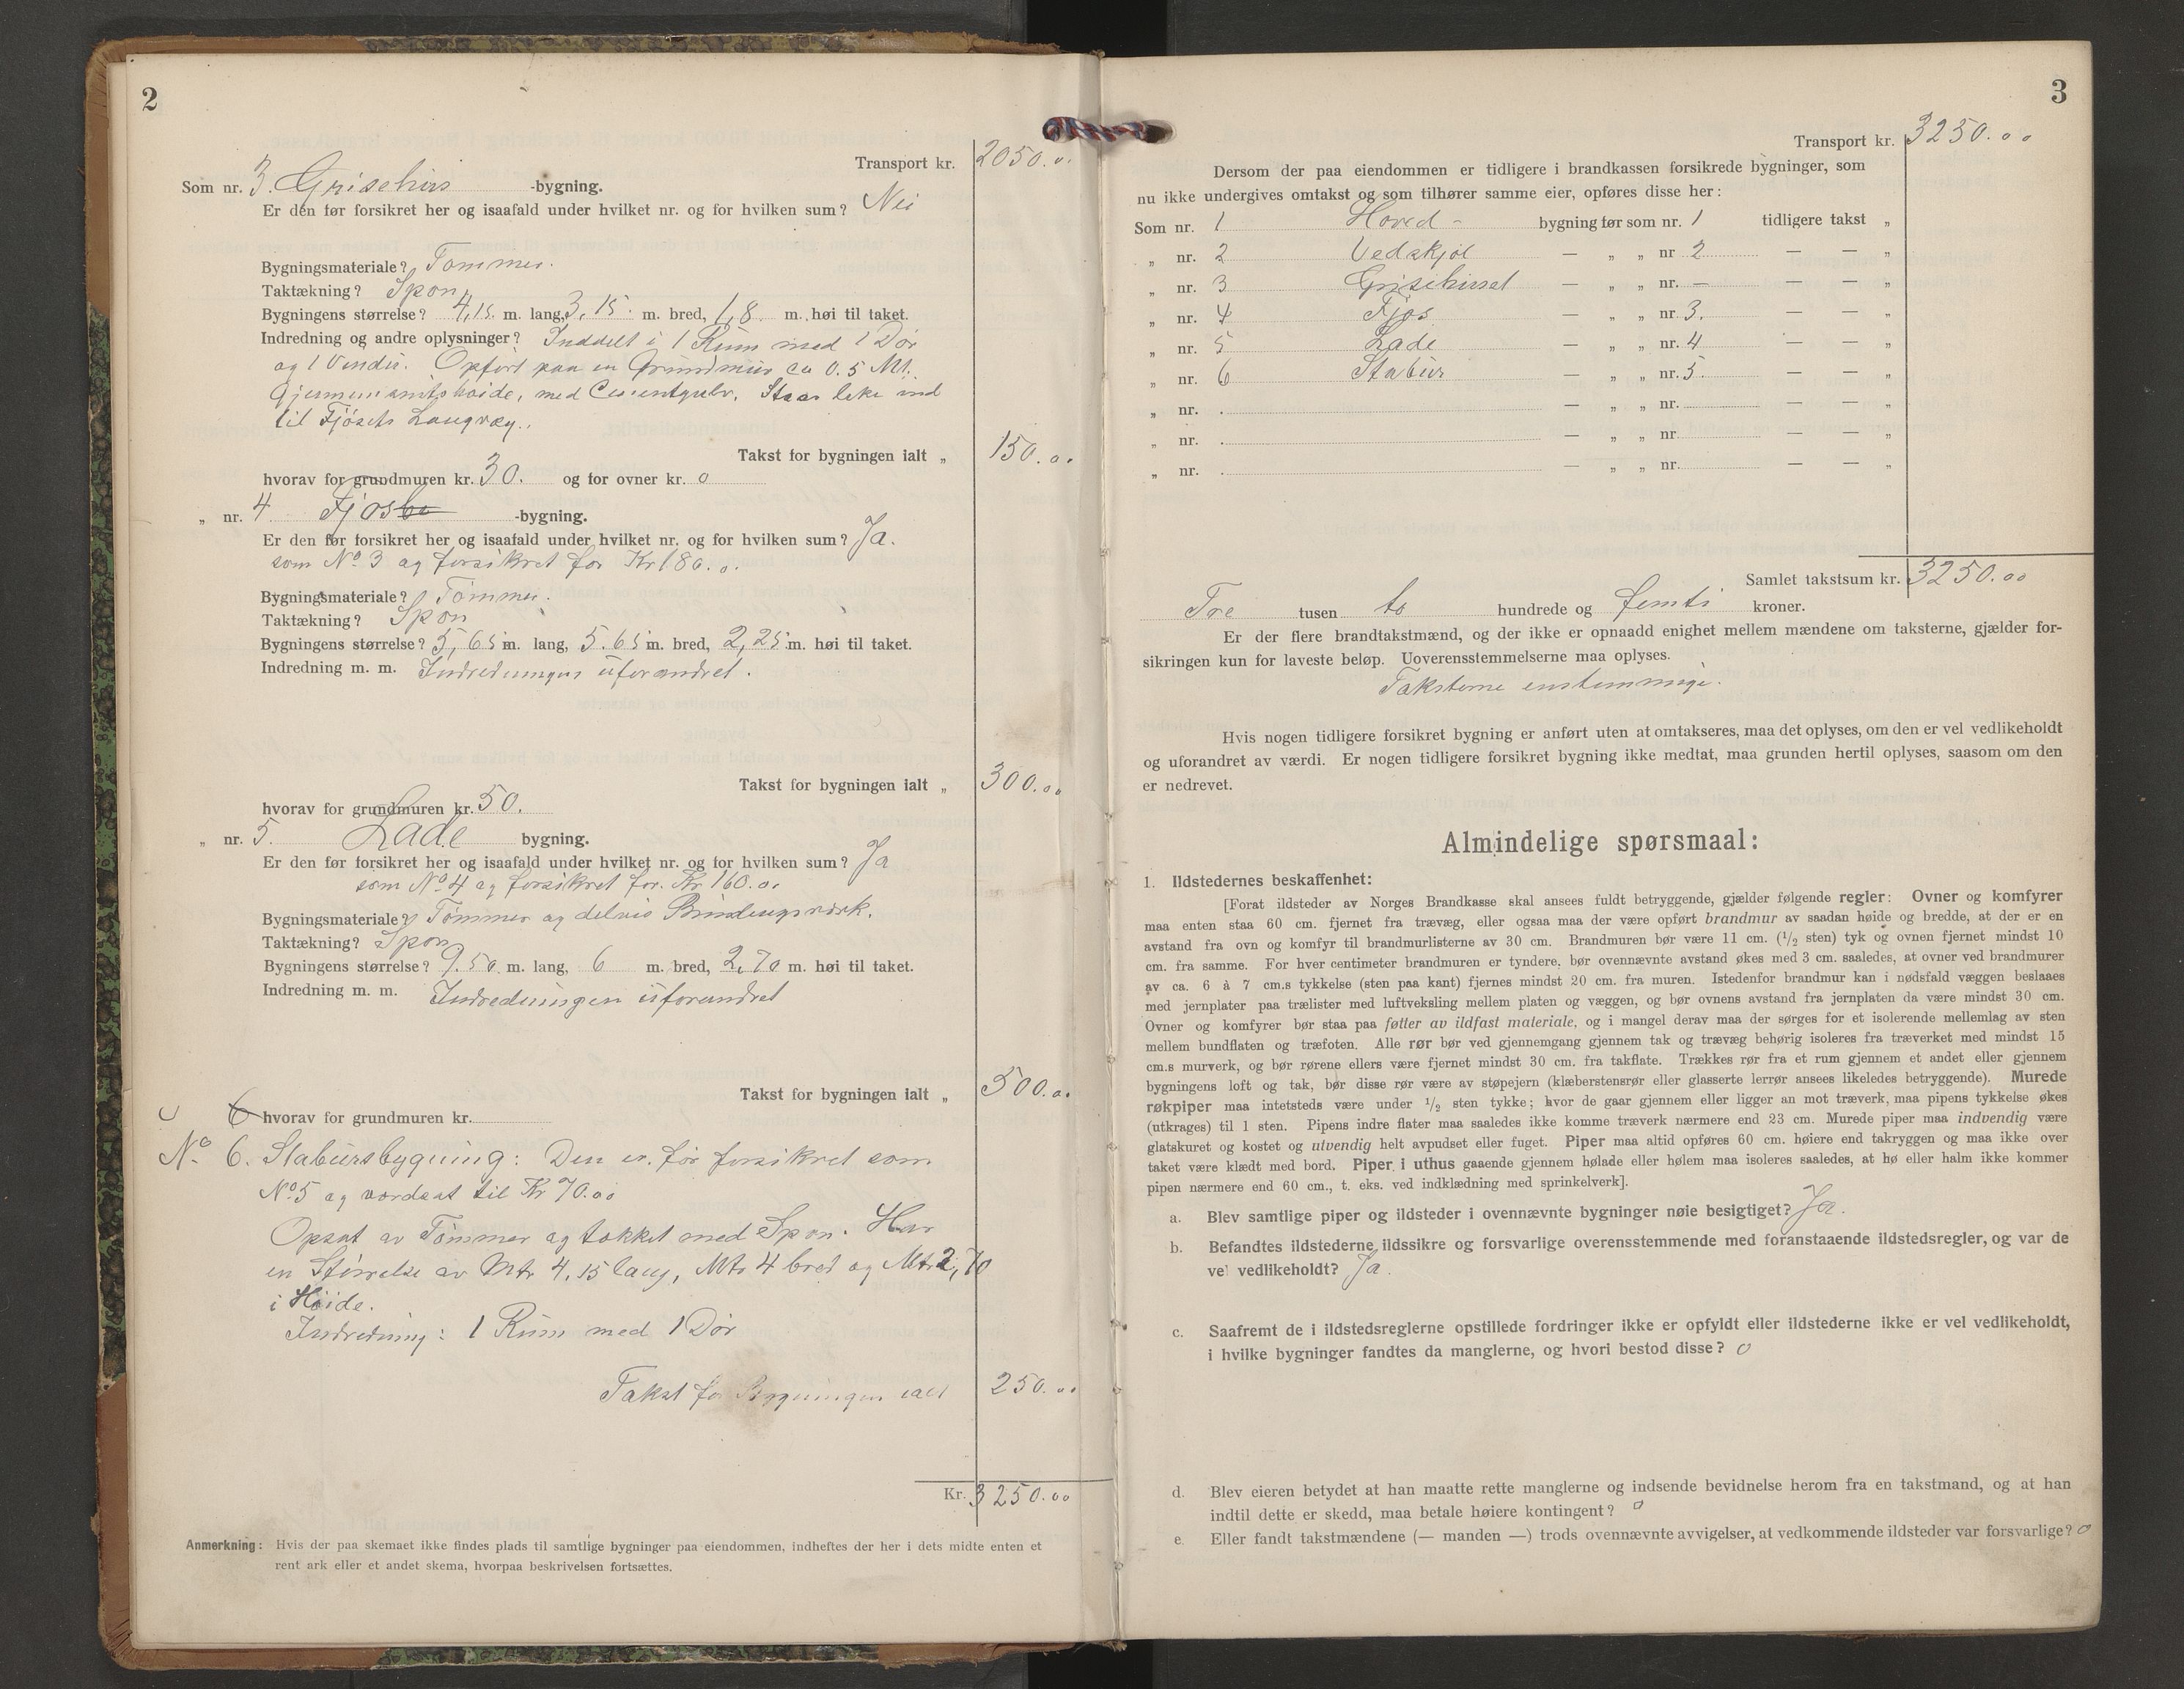 2
Transport kr. 2050.00
Som nr. 3. Grisehus -bygning.
Er den før forsikret her og isaafald under hvilket nr. og for hvilken sum? Nei
Bygningsmateriale? Tømmer.
Taktækning? Spon
Bygningens størrelse? 4,15. m. lang, 3,15. m. bred, 1,8. m. høi til taket.
Indredning og andre oplysninger? Inddelt i 1 Rum med 1 Dør
og 1 Vindu. Opført paa en Grundmur ca 0.5 Mt.
Gjennemsnitshøide, med Cementgulv. Staar like ind
til Fjøsets Langvæg.
Takst for bygningen ialt „ 150.00
hvorav for grundmuren kr. 30. og for ovner kr. 0
„ nr. 4 Fjøs -bygning.
Er den før forsikret her og isaafald under hvilket nr. og for hvilken sum? Ja.
som No 3 og forsikret for Kr 180.0.
Bygningsmateriale? Tømmer.
Taktækning? Spon
Bygningens størrelse? 5,65 m. lang, 5.65 m. bred, 2,25 m. høi til taket.
Indredning m. m. Indredningen uforandret.
Takst for bygningen ialt „ 300.00
hvorav for grundmuren kr. 50.
„ nr. 5. Lade bygning.
Er den før forsikret her og isaafald under hvilket nr. og for hvilken sum? Ja
som No 4 og forsikret for. Kr 160.0.
Bygningsmateriale? Tømmer og delvis Bindingsværk.
Taktækning? Spon
Bygningens størrelse? 9.50 m. lang, 6 m. bred, 2,70 m. høi til taket.
Indredning m. m. Indredningen uforandret
Takst for bygningen ialt „ 500.00
6 hvorav for grundmuren kr.
No 6. Stabursbygning: Den er før forsikret som
No 5 og værdsat til Kr 70.00
Opsat av Tømmer og tækket med Spon. Har
en Størrelse av Mtr 4,15 lang, Mtr 4 bred og Mtr 2,70
i Høide.
Indredning: 1 Rum med 1 Dør
Takst for Bygningen ialt 250.00
Kr. 3250.00
Anmerkning: Hvis der paa skemaet ikke findes plads til samtlige bygninger paa eiendommen, indheftes der her i dets midte enten et
rent ark eller et andet skema, hvorpaa beskrivelsen fortsættes.
3
Transport kr. 3250.00
Dersom der paa eiendommen er tidligere i brandkassen forsikrede bygninger, som
nu ikke undergives omtakst og som tilhører samme eier, opføres disse her:
Som nr. 1 Hoved- bygning før som nr. 1 tidligere takst „
„ nr. 2 Vedskjøl — „ „ nr 2 — — „
„ nr. 3 Grisehuset — „ „ nr. — — — „
„ nr. 4 Fjøs — „ „ nr. 3. — — „
„ nr. 5 Lade — „ „ nr. 4 — — „
„ nr. 6 Stabur — „ „ nr. 5. — — „
„ nr. . — „ „ nr. — — „
„ nr. . — „ „ nr — — „
„ nr. . — „ „ nr. — — „
Samlet takstsum kr. 3250.00
Tre tusen to hundrede og femti kroner.
Er der flere brandtakstmænd, og der ikke er opnaadd enighet mellem mændene om taksterne, gjælder for-
sikringen kun for laveste beløp. Uoverensstemmelserne maa oplyses.
Taksterne enstemmige.
Hvis nogen tidligere forsikret bygning er anført uten at omtakseres, maa det oplyses, om den er vel vedlikeholdt
og uforandret av værdi. Er nogen tidligere forsikret bygning ikke medtat, maa grunden hertil oplyses, saasom om den
er nedrevet.
Almindelige spørsmaal:
1. Ildstedernes beskaffenhet:
[Forat ildsteder av Norges Brandkasse skal ansees fuldt betryggende, gjælder følgende regler: Ovner og komfyrer
maa enten staa 60 cm. fjernet fra trævæg, eller ogsaa maa der være opført brandmur av saadan høide og bredde, at der er en
avstand fra ovn og komfyr til brandmurlisterne av 30 cm. Brandmuren bør være 11 cm. (1/2 sten) tyk og ovnen fjernet mindst 10
cm. fra samme. For hver centimeter brandmuren er tyndere, bør ovennævnte avstand økes med 3 cm. saaledes, at ovner ved brandmurer
av ca. 6 à 7 cm.s tykkelse (sten paa kant) fjernes mindst 20 cm. fra muren. Istedenfor brandmur kan i nødsfald væggen beslaaes
med jernplater paa trælister med luftveksling mellem platen og væggen, og bør ovnens avstand fra jernplaten da være mindst 30 cm.
Ovner og komfyrer bør staa paa føtter av ildfast materiale, og i mangel derav maa der sørges for et isolerende mellemlag av sten
mellem bundflaten og træfoten. Alle rør bør ved gjennemgang gjennem tak og trævæg behørig isoleres fra træverket med mindst 15
cm.s murverk, og bør rørene ellers være fjernet mindst 30 cm. fra takflate. Trækkes rør fra et rum gjennem et andet eller gjennem
bygningens loft og tak, bør disse rør være av støpejern (klæberstensrør eller glasserte lerrør ansees likeledes betryggende). Murede
røkpiper maa intetsteds være under 1/2 sten tykke; hvor de gaar gjennem eller ligger an mot træverk, maa pipens tykkelse økes
(utkrages) til 1 sten. Pipens indre flater maa saaledes ikke komme træverk nærmere end 23 cm. Murede piper maa indvendig være
glatskuret og kostet og utvendig helt avpudset eller fuget. Piper maa altid opføres 60 cm. høiere end takryggen og maa ikke over
taket være klædt med bord. Piper i uthus gaaende gjennem hølade eller hølem maa isoleres saaledes, at hø eller halm ikke kommer
pipen nærmere end 60 cm., t. eks. ved indklædning med sprinkelverk].
a. Blev samtlige piper og ildsteder i ovennævnte bygninger nøie besigtiget? Ja.
b. Befandtes ildstederne ildssikre og forsvarlige overensstemmende med foranstaaende ildstedsregler, og var de
vel vedlikeholdt? Ja.
c. Saafremt de i ildstedsreglerne opstillede fordringer ikke er opfyldt eller ildstederne ikke er vel vedlikeholdt,
i hvilke bygninger fandtes da manglerne, og hvori bestod disse? 0
d. Blev eieren betydet at han maatte rette manglerne og indsende bevidnelse herom fra en takstmand, og at han
indtil dette er skedd, maa betale høiere kontingent? 0
e. Eller fandt takstmændene (— manden —) trods ovennævnte avvigelser, at vedkommende ildsteder var forsvarlige? 0